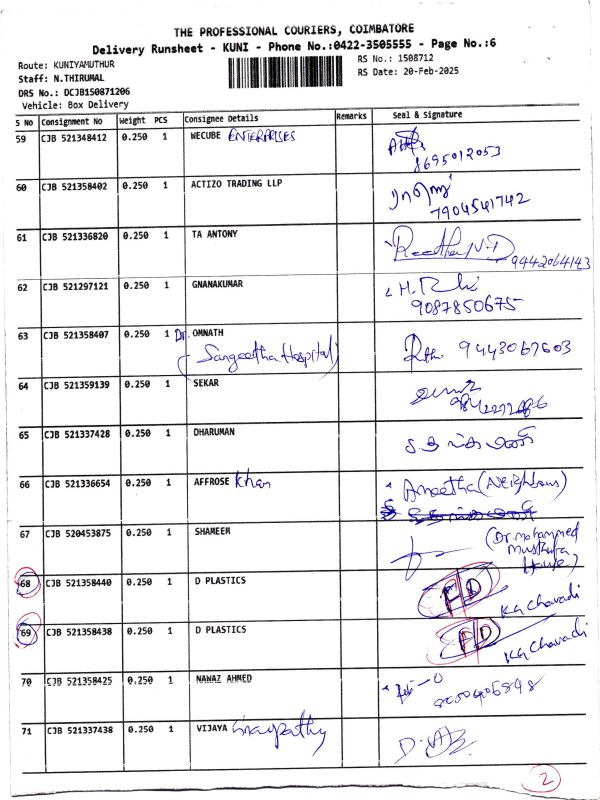 THE PROFESSIONAL COURIERS, COIMBATORE
Delivery Runsheet - KUNI - Phone No.:0422-3505555 - Page No.:6
Route: KUNIYAMUTHUR
RS No.: 1508712
Staff: N.THIRUMAL
RS Date: 20-Feb-2025
DRS No.: DCJB150871206
Vehicle: Box Delivery
S NO Consignment No Weight PCS Consignee Details Remarks Seal & Signature
59 CJB 521348412 0.250 1 WECUBE ENTERPRISES
8695012053
60 CJB 521358402 0.250 1 ACTIZO TRADING LLP
7904541742
61 CJB 521336820 0.250 1 TA ANTONY
9442064143
62 CJB 521297121 0.250 1 GNANAKUMAR
9087850675
63 CJB 521358407 0.250 1 Dr. OMNATH 9443067603
(Sangeetha Hospital)
64 CJB 521359139 0.250 1 SEKAR
65 CJB 521337428 0.250 1 DHARUMAN
66 CJB 521336654 0.250 1 AFFROSE Khan Aneetha (Neighbours)
67 CJB 520453875 0.250 1 SHAMEEM (Dr. Mohammed
Musthafa
House)
68 CJB 521358440 0.250 1 D PLASTICS FD
KG Chavadi
69 CJB 521358438 0.250 1 D PLASTICS FD
KG Chavadi
70 CJB 521358425 0.250 1 NAWAZ AHMED
71 CJB 521337438 0.250 1 VIJAYA
2